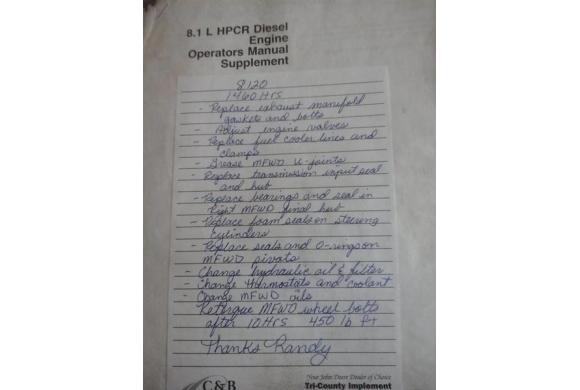 8.1 L HPCR Diesel
Engine
Operators Manual
Supplement
8120
1460 Hrs
- Replace exhaust manifold
gaskets and bolts
- Adjust engine valves
- Replace fuel cooler lines and
clamps
- Grease MFWD U-joints
- Replace transmission input seal
and hub
- Replace bearings and seal in
Right MFWD final hub
- Replace foam seals on steering
Cylinders
- Replace seals and O-rings on
MFWD pivots
- Change hydraulic oil & filter
- Change thermostats and coolant
- Change MFWD oils
Retorque MFWD wheel bolts
after 10 Hrs 450 lb ft
Thanks Randy
Your John Deere Dealer of Choice
C&B Tri-County Implement